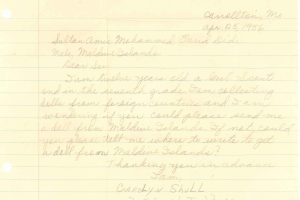 Carrollton, Mo
Apr. 25, 1956
Sultan Amir Mohammed Farid Didi
Male, Maldive Islands
Dear Sir
I am twelve years old a Girl Scout
and in the seventh grade I am collecting
dolls from foreign countries and I am
wondering if you could please send me
a doll from Maldive Islands. If not, could
you please tell me where to write to get
a doll from Maldive Islands?
Thanking you in advance
I am,
Carolyn Shull